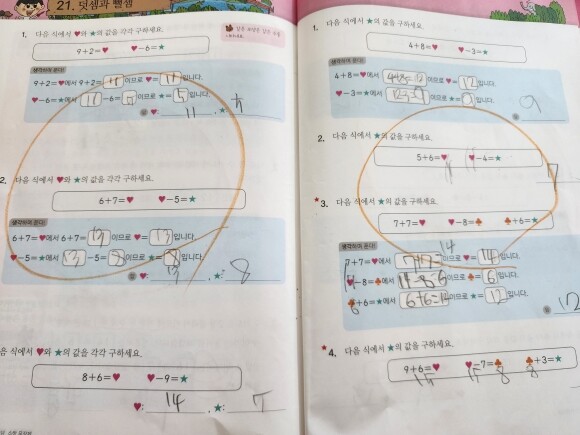 21. 덧셈과 뺄셈
1. 다음 식에서 ♥와 ★의 값을 각각 구하세요.
9+2=♥ ♥-6=★
생각하며 푼다!
9+2=♥에서 9+2= 11 이므로 ♥= 11 입니다.
♥-6=★에서 11 -6= 5 이므로 ★= 5 입니다.
♥: 11 , ★:
2. 다음 식에서 ♥와 ★의 값을 각각 구하세요.
6+7=♥ ♥-5=★
생각하며 푼다!
6+7=♥에서 6+7= 13 이므로 ♥= 13 입니다.
♥-5=★에서 13 -5= 8 이므로 ★= 8 입니다.
♥: 13 , ★: 8
다음 식에서 ♥와 ★의 값을 각각 구하세요.
8+6=♥ ♥-9=★
♥: 14 , ★:
1. 다음 식에서 ★의 값을 구하세요.
4+8=♥ ♥-3=★
생각하며 푼다!
4+8=♥에서 4+8=12 이므로 ♥= 12 입니다.
♥-3=★에서 12-3=9 이므로 ★= 9 입니다.
9
2. 다음 식에서 ★의 값을 구하세요.
5+6=♥ ♥-4=★
7
★3. 다음 식에서 ★의 값을 구하세요.
7+7=♥ ♥-8=♣ ♣+6=★
생각하며 푼다!
14
7+7=♥에서 7+7= 이므로 ♥= 14 입니다.
♥-8=♣에서 14-8=6 이므로 ♣= 6 입니다.
♣+6=★에서 6+6=12 이므로 ★= 12 입니다.
6
12
★4. 다음 식에서 ★의 값을 구하세요.
9+6=♥ ♥-7=♣ ♣+3=★
15 15 8 8